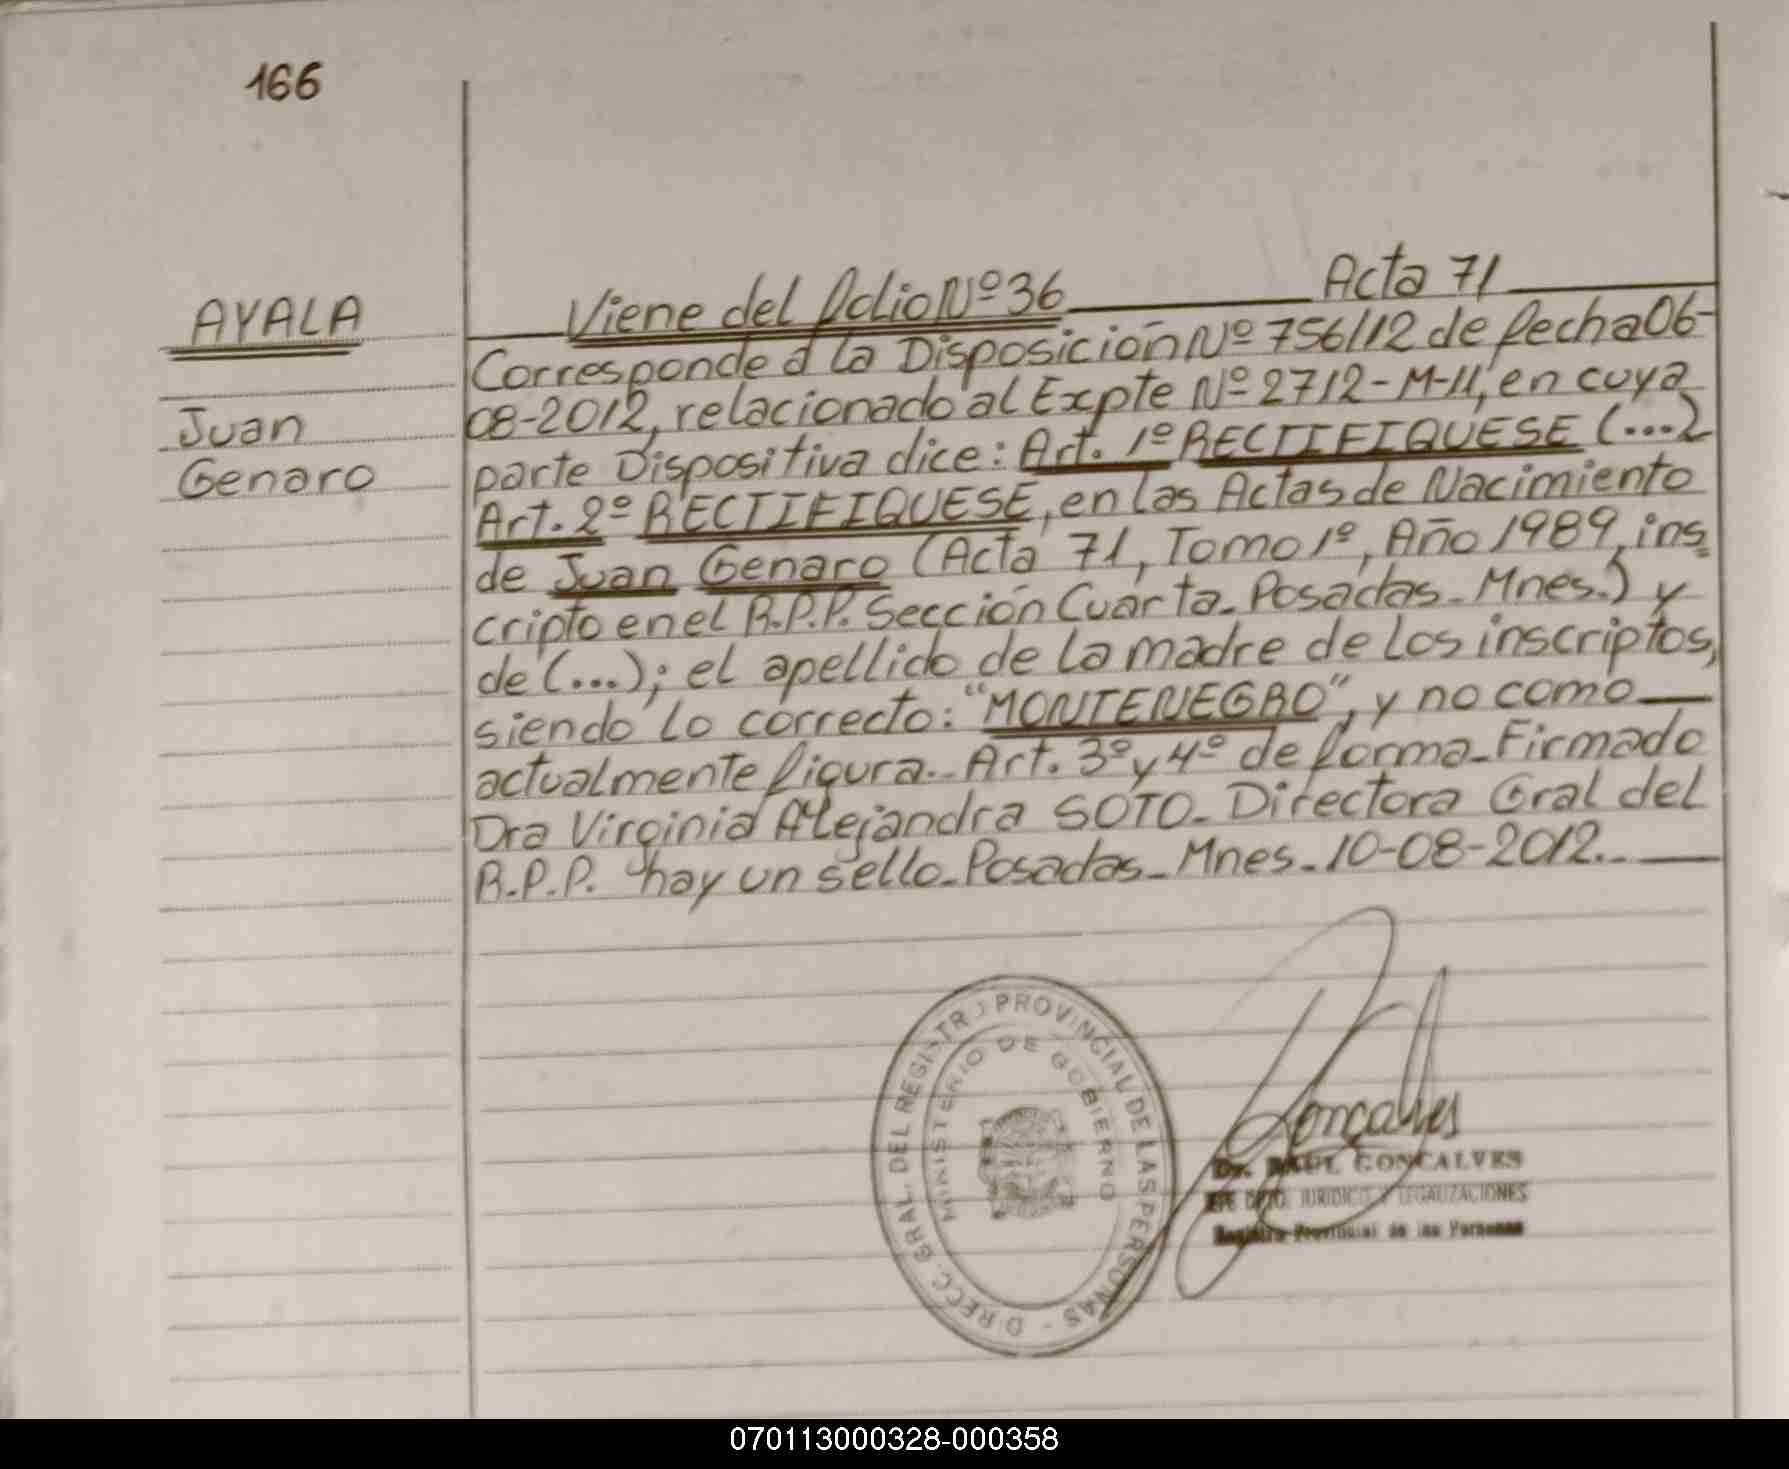 166
AYALA
Juan
Genaro
Viene del folio Nº 36 Acta 71
Corresponde a la Disposición Nº 756/12 de fecha 06-
08-2012, relacionado al Expte Nº 2712-M-11, en cuya
parte Dispositiva dice: Art. 1º RECTIFIQUESE (...)
Art. 2º RECTIFIQUESE, en las Actas de Nacimiento
de Juan Genaro (Acta 71, Tomo 1º, Año 1989, ins=
cripto en el R.P.P. Sección Cuarta_ Posadas_ Mnes.) y
de (...); el apellido de la madre de los inscriptos,
siendo lo correcto: "MONTENEGRO", y no como
actualmente figura._ Art. 3º y 4º de forma_ Firmado
Dra Virginia Alejandra SOTO_ Directora Gral del
R.P.P. hay un sello_ Posadas_ Mnes_ 10-08-2012._
DIRECC. GRAL. DEL REGISTRO PROVINCIAL DE LAS PERSONAS -
MINISTERIO DE GOBIERNO
Gonçalves
Dr. RAUL GONCALVES
JEFE DPTO. JURIDICO Y LEGALIZACIONES
Registro Provincial de las Personas
070113000328-000358